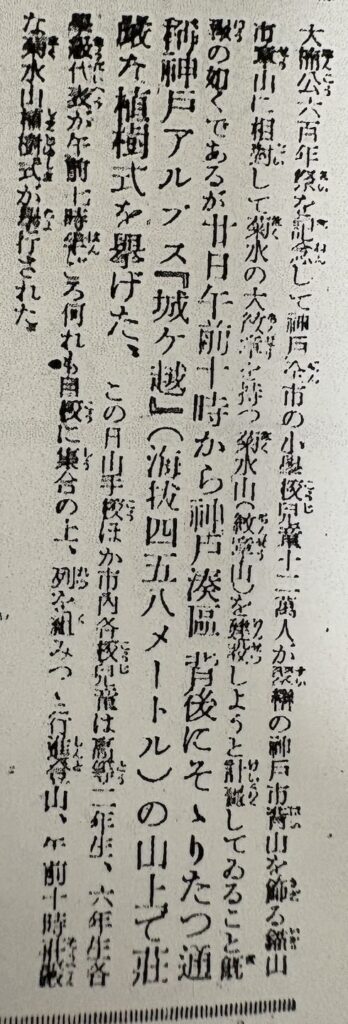 大楠公六百年祭を記念して神戸全市の小學校兒童十二萬人が翠巒の神戸市背山を飾る錨山
市章山に相對して菊水の大紋章を持つ菊水山(紋章山)を建設しようと計畫してゐること既
報の如くであるが廿日午前十時から神戸湊區背後にそゝりたつ通
稱神戸アルプス『城ケ越』(海拔四五八メートル)の山上で莊
嚴な植樹式を擧げた、
この日山手校ほか市内各校兒童は高等二年生、六年生各
學級代表が午前七時半ごろ何れも自校に集合の上、列を組みつゝ行進登山、午前十時莊嚴
な菊水山植樹式が擧行された